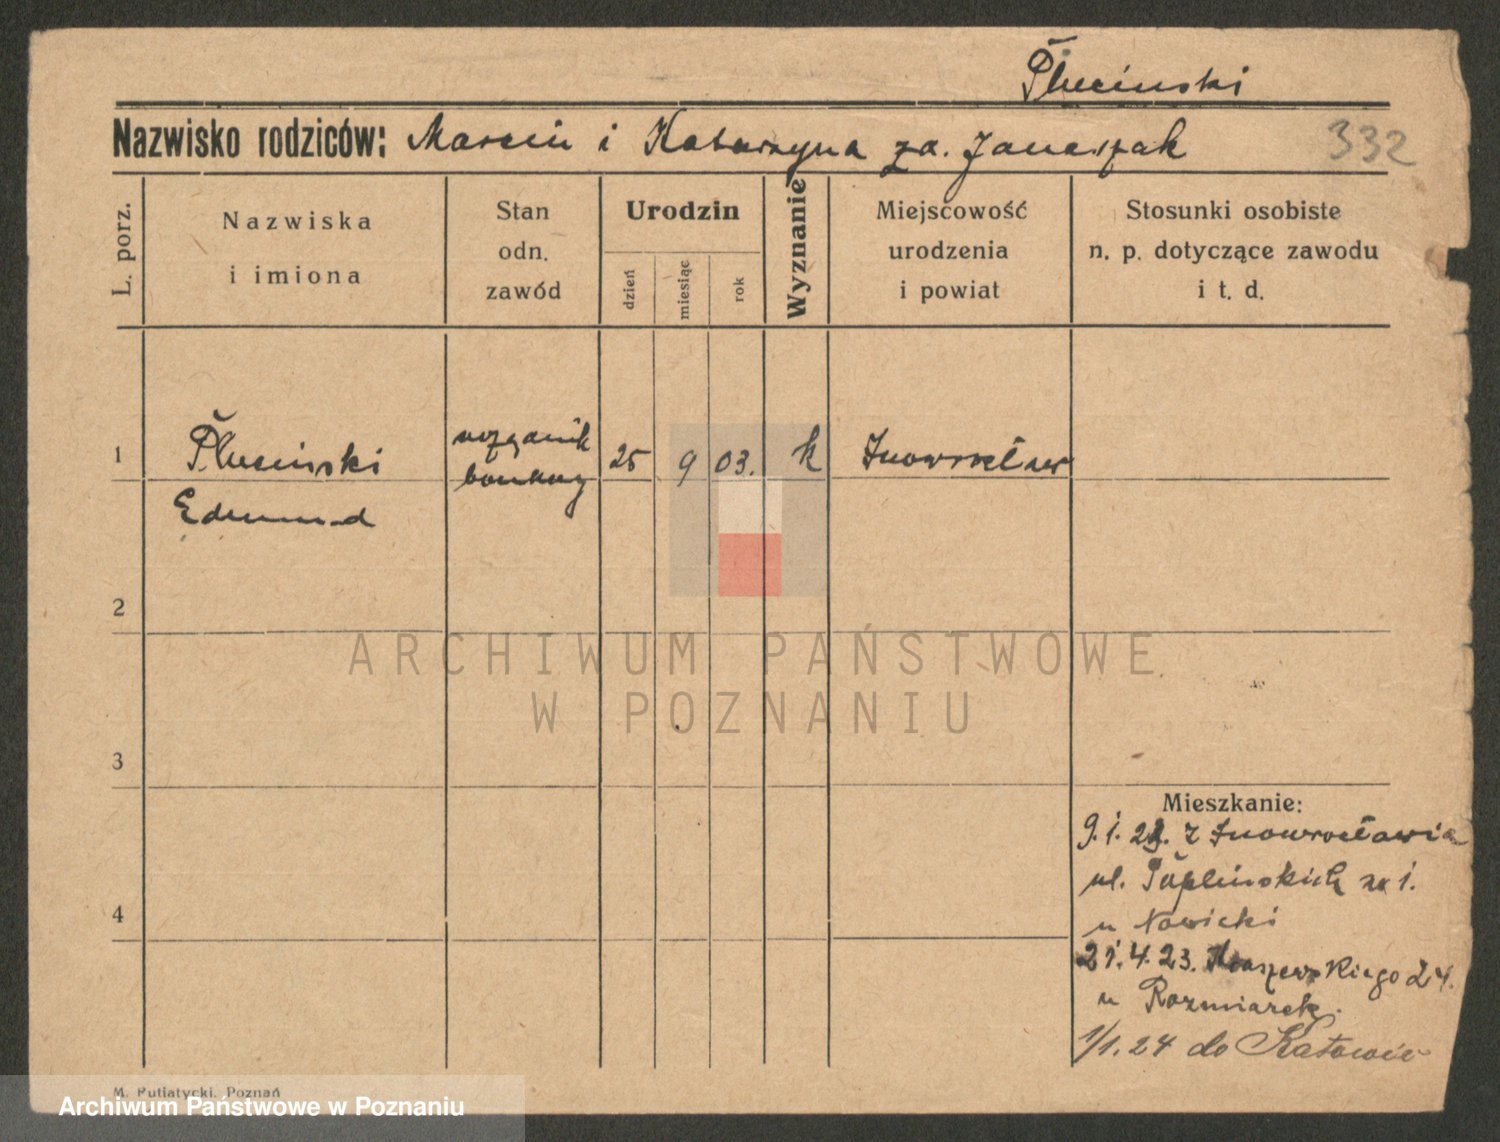 Pluciński
Nazwisko rodziców: Marcin i Katarzyna za. Janaszak 332
L. porz.
Nazwiska
i imiona
Stan
odn.
zawód
Urodzin
dzień
miesiąc
rok
Wyznanie
Miejscowość
urodzenia
i powiat
Stosunki osobiste
n. p. dotyczące zawodu
i t. d.
1 Pluciński 25 9 03. k Inowrocław
Edmund
2
3
4
Mieszkanie:
9.1. z Inowrocławia
ul. 1.
u Nowicki
21.4.23. Kraszewskiego 24.
u Rozmiarek.
1/1.24 do Katowic
M. Putiatycki, Poznań
ARCHIWUM PAŃSTWOWE
W POZNANIU
Archiwum Państwowe w Poznaniu